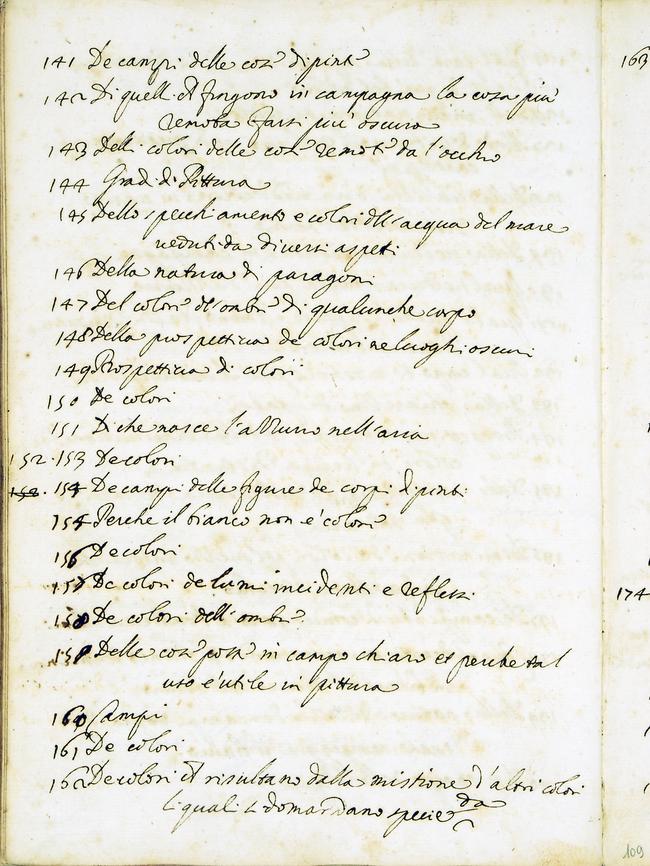 141 De campi delle cose dipinte
142 Di quelli ch fingono in campagna la cosa più
remota farsi più oscura
143 Delli colori delle cose remote da l'occhio
144 Gradi di Pittura
145 Dello specchiamento e colori dell'acqua del mare
veduti da diversi aspetti
146 Della natura di paragoni
147 Del colore dell'ombre di qualunche corpo
148 Della prospettiva de colori ne luoghi oscuri
149 Prospettiva di colori
150 De colori
151 Di che nasce l'azzurro nell'aria
152. 153 De colori
153. 154 De campi delle figure de corpi dipinti
154 Perche il bianco non é colore
156 De colori
157 De colori de lumi incidenti e reflessi
158 De colori dell'ombre
159 Delle cose poste in campo chiaro et perche tal
uso é utile in pittura
160 Campi
161 De colori
162 De colori ch risultano dalla mistione d'altri colori
li quali si domandano specie da
163
174
109